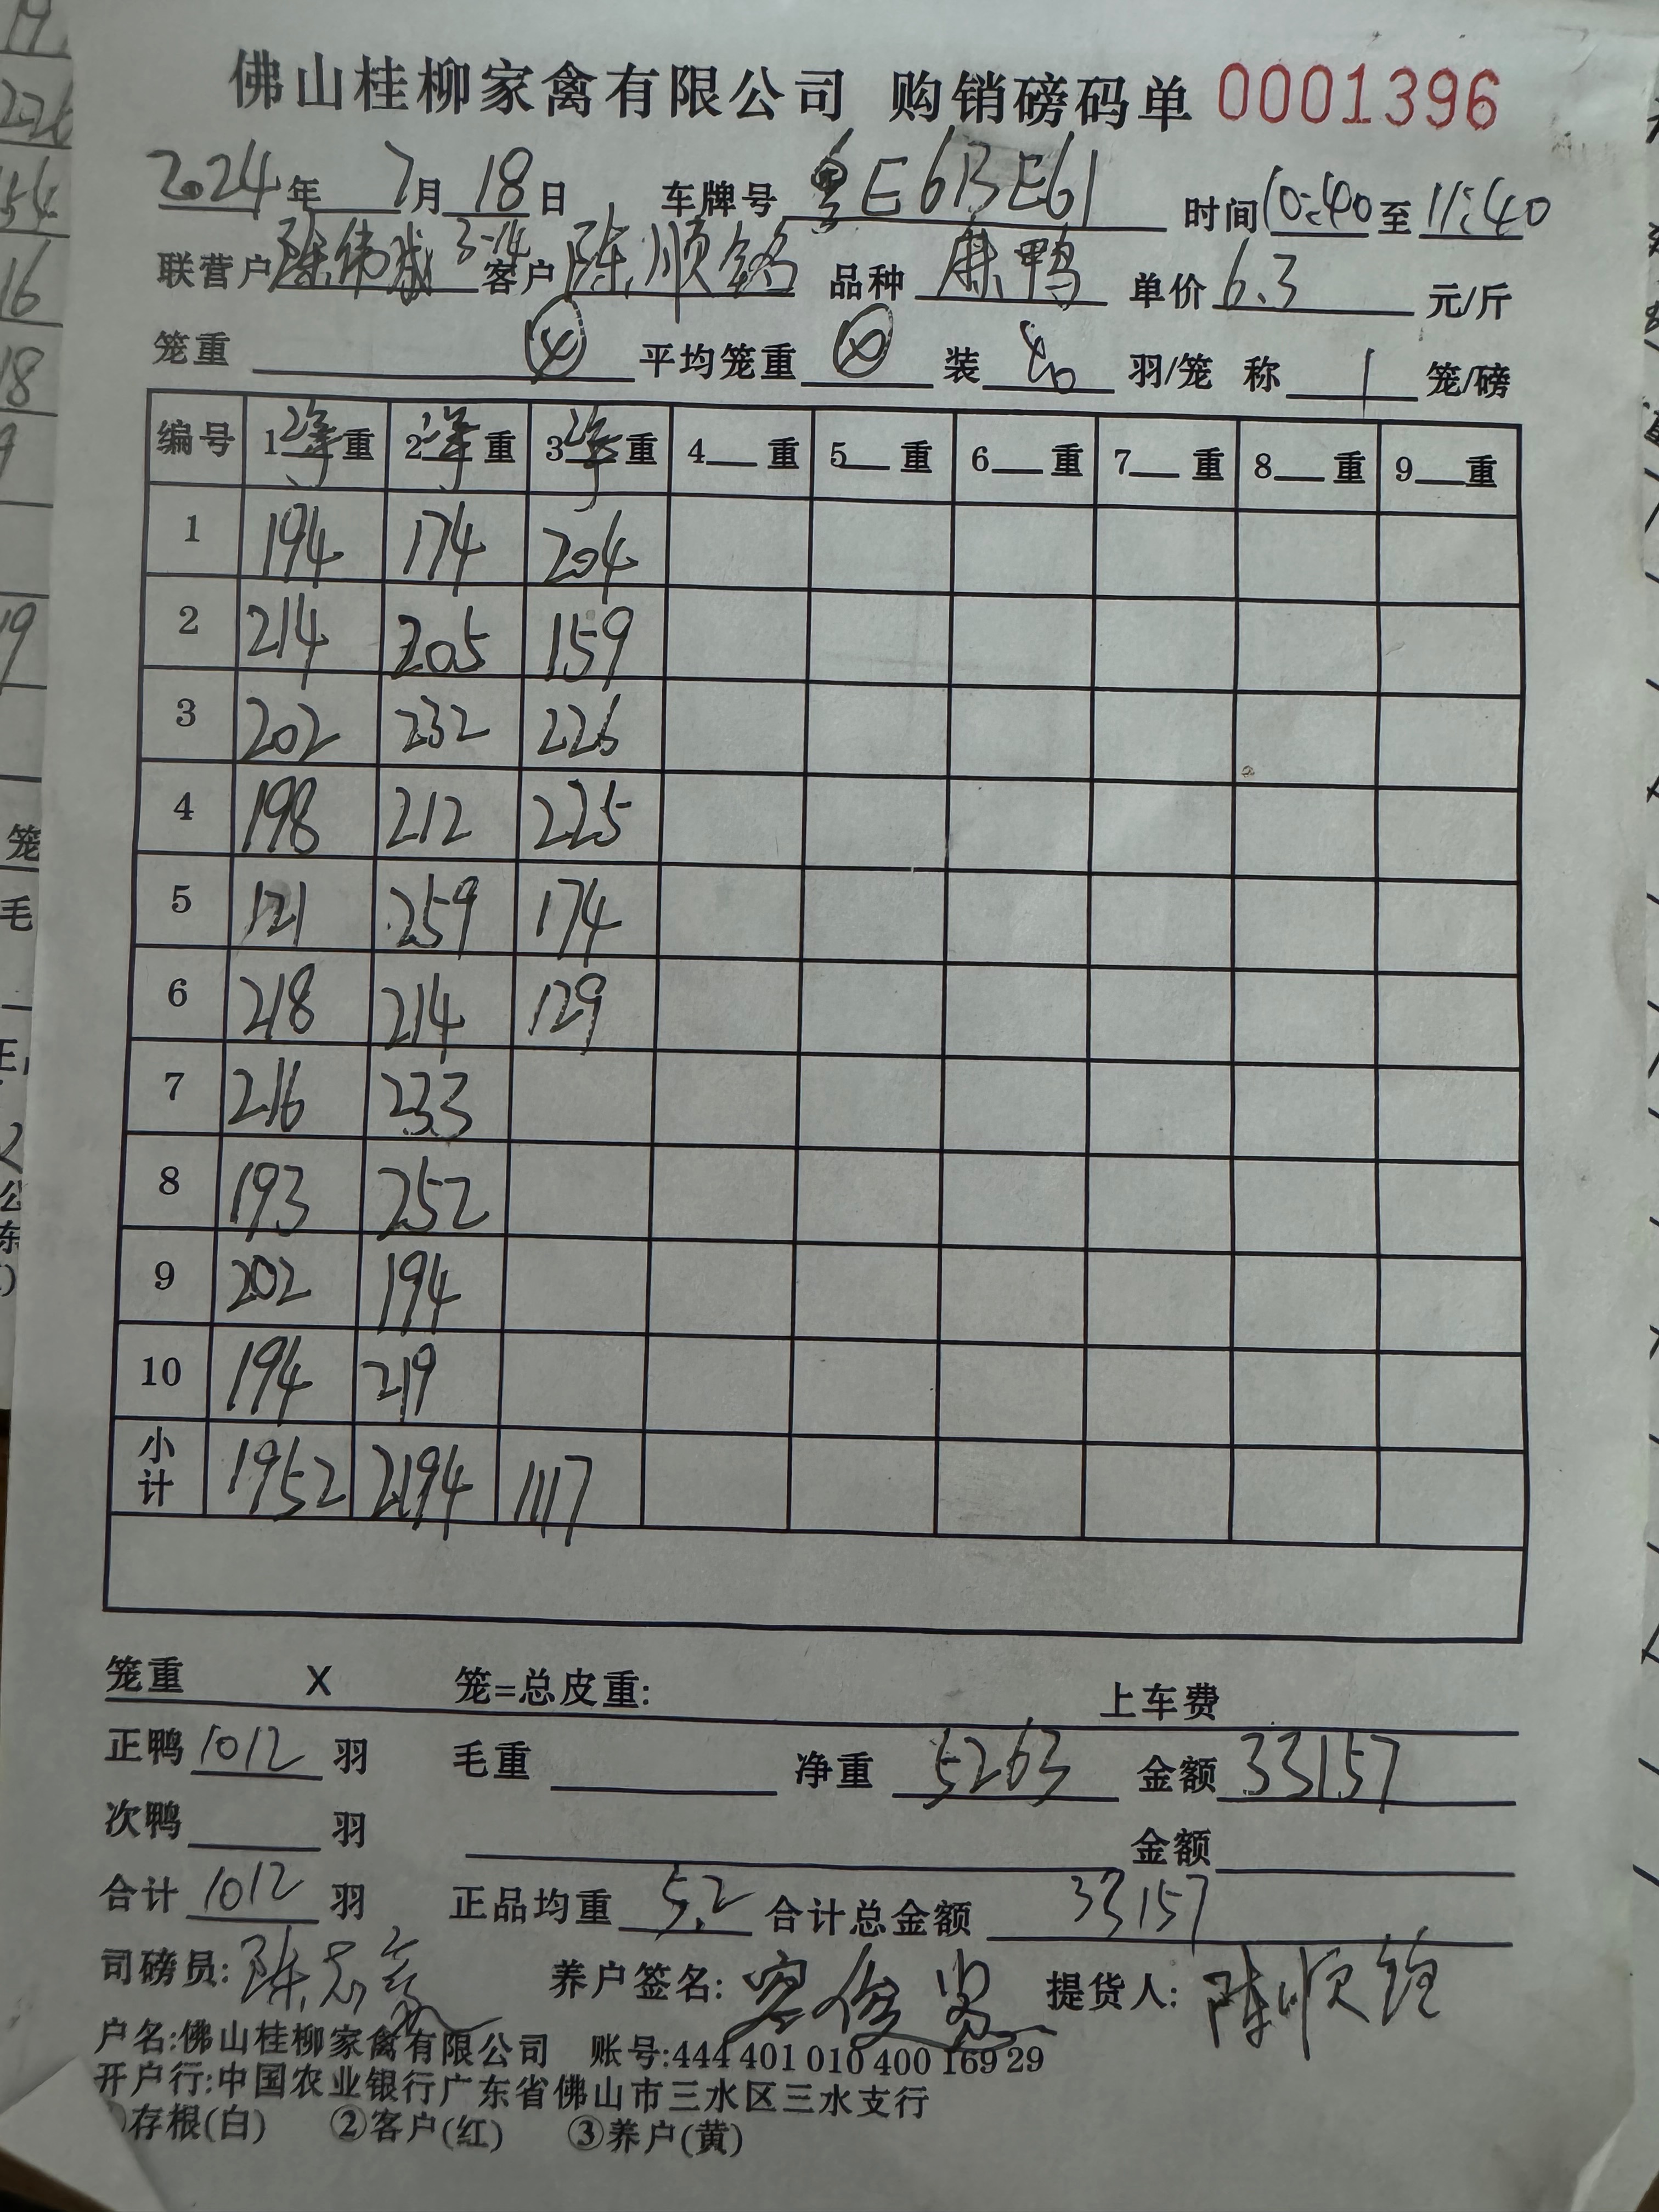 佛山桂柳家禽有限公司 购销磅码单 0001396
2024年 7月 18日 车牌号 粤E6BE61 时间 10:40 至 11:40
联营户 陈伟成 3-14 客户 陈顺铭 品种 麻鸭 单价 6.3 元/斤
笼重 平均笼重 装 羽/笼 称 1 笼/磅
编号 1净重 2净重 3净重 4 重 5 重 6 重 7 重 8 重 9 重
1 194 174 204
2 214 205 159
3 202 232 226
4 198 212 225
5 121 259 174
6 218 214 129
7 216 233
8 193 252
9 202 194
10 194 219
小计 1952 2194 1117
笼重 X 笼=总皮重: 上车费
正鸭 1012 羽 毛重 净重 5263 金额 33157
次鸭 羽 金额
合计 1012 羽 正品均重 5.2 合计总金额 33157
司磅员: 陈志 养户签名: 容俊坚 提货人: 陈顺铭
户名:佛山桂柳家禽有限公司 账号:444 401 010 400 169 29
开户行:中国农业银行广东省佛山市三水区三水支行
存根(白) ②客户(红) ③养户(黄)